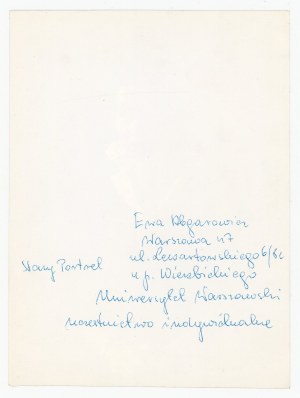 Ewa Abgarowicz
Warszawa 47
ul. Lewartowskiego 6/
Stary Portret
u p. Wierzbickiego
Uniwersytet Warszawski
uczestnictwo indywidualne